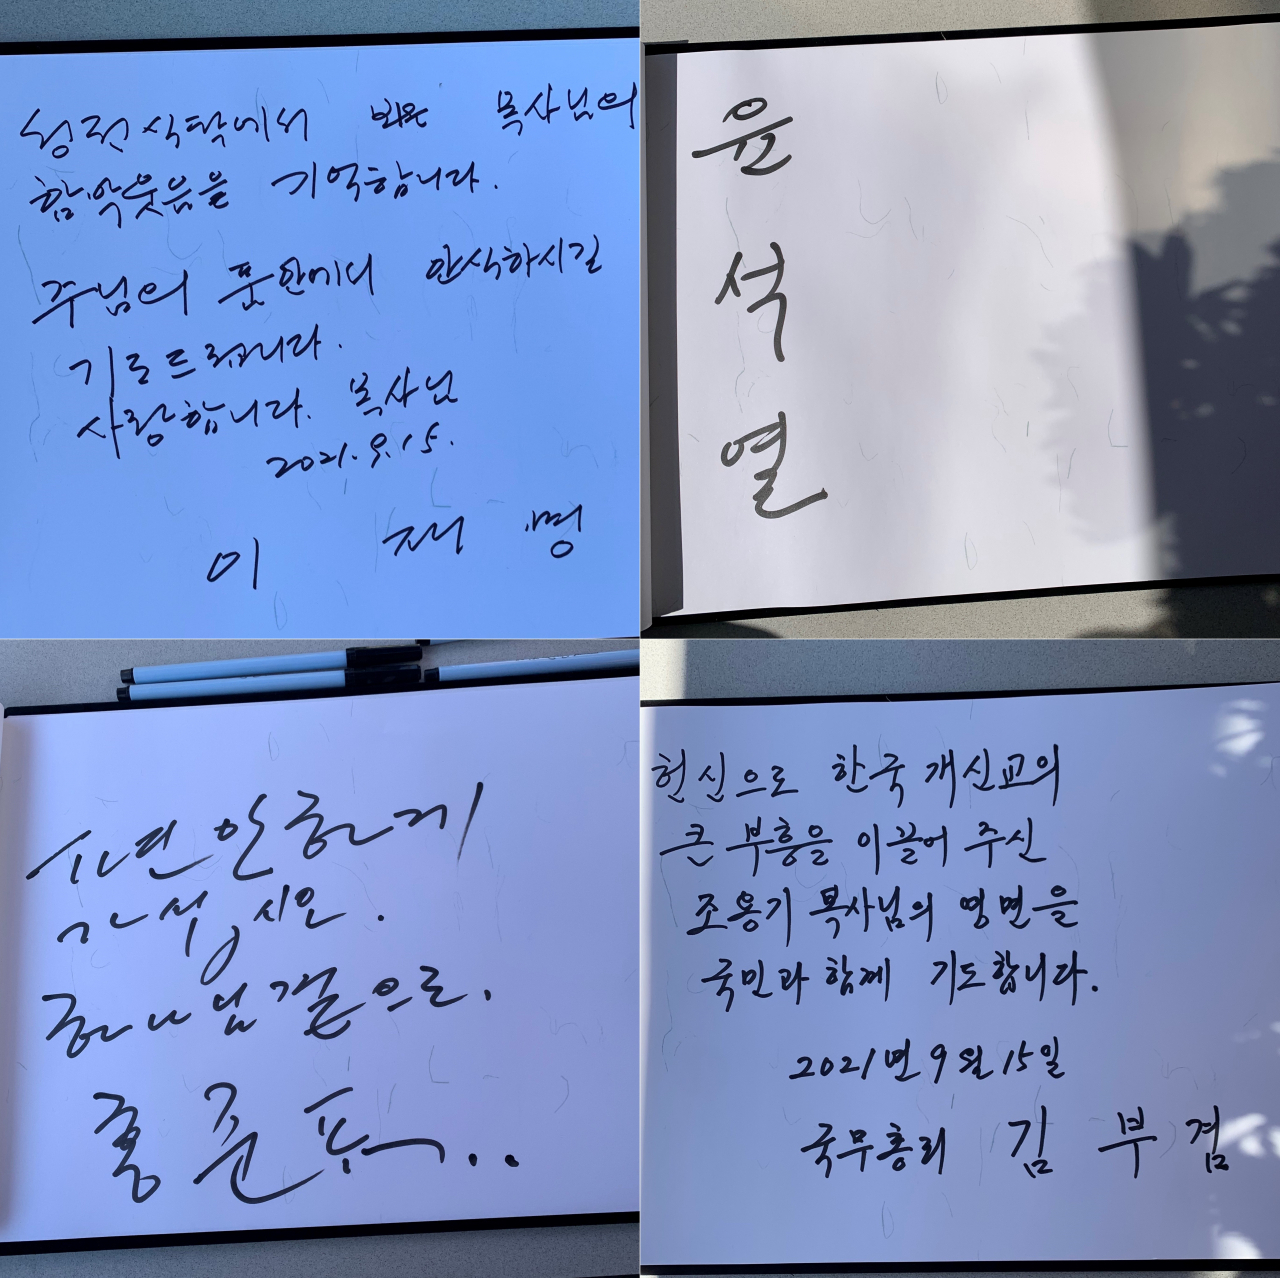 성전식탁에서 뵈온 목사님의
함박웃음을 기억합니다.
주님의 품안에서 안식하시길
기도드립니다.
사랑합니다. 목사님
2021.9.15.
이 재 명
윤
석
열
편안하게
가십시오.
하나님 곁으로.
홍준표..
헌신으로 한국 개신교의
큰 부흥을 이끌어 주신
조용기 목사님의 명면을
국민과 함께 기도합니다.
2021년 9월 15일
국무총리 김 부 겸